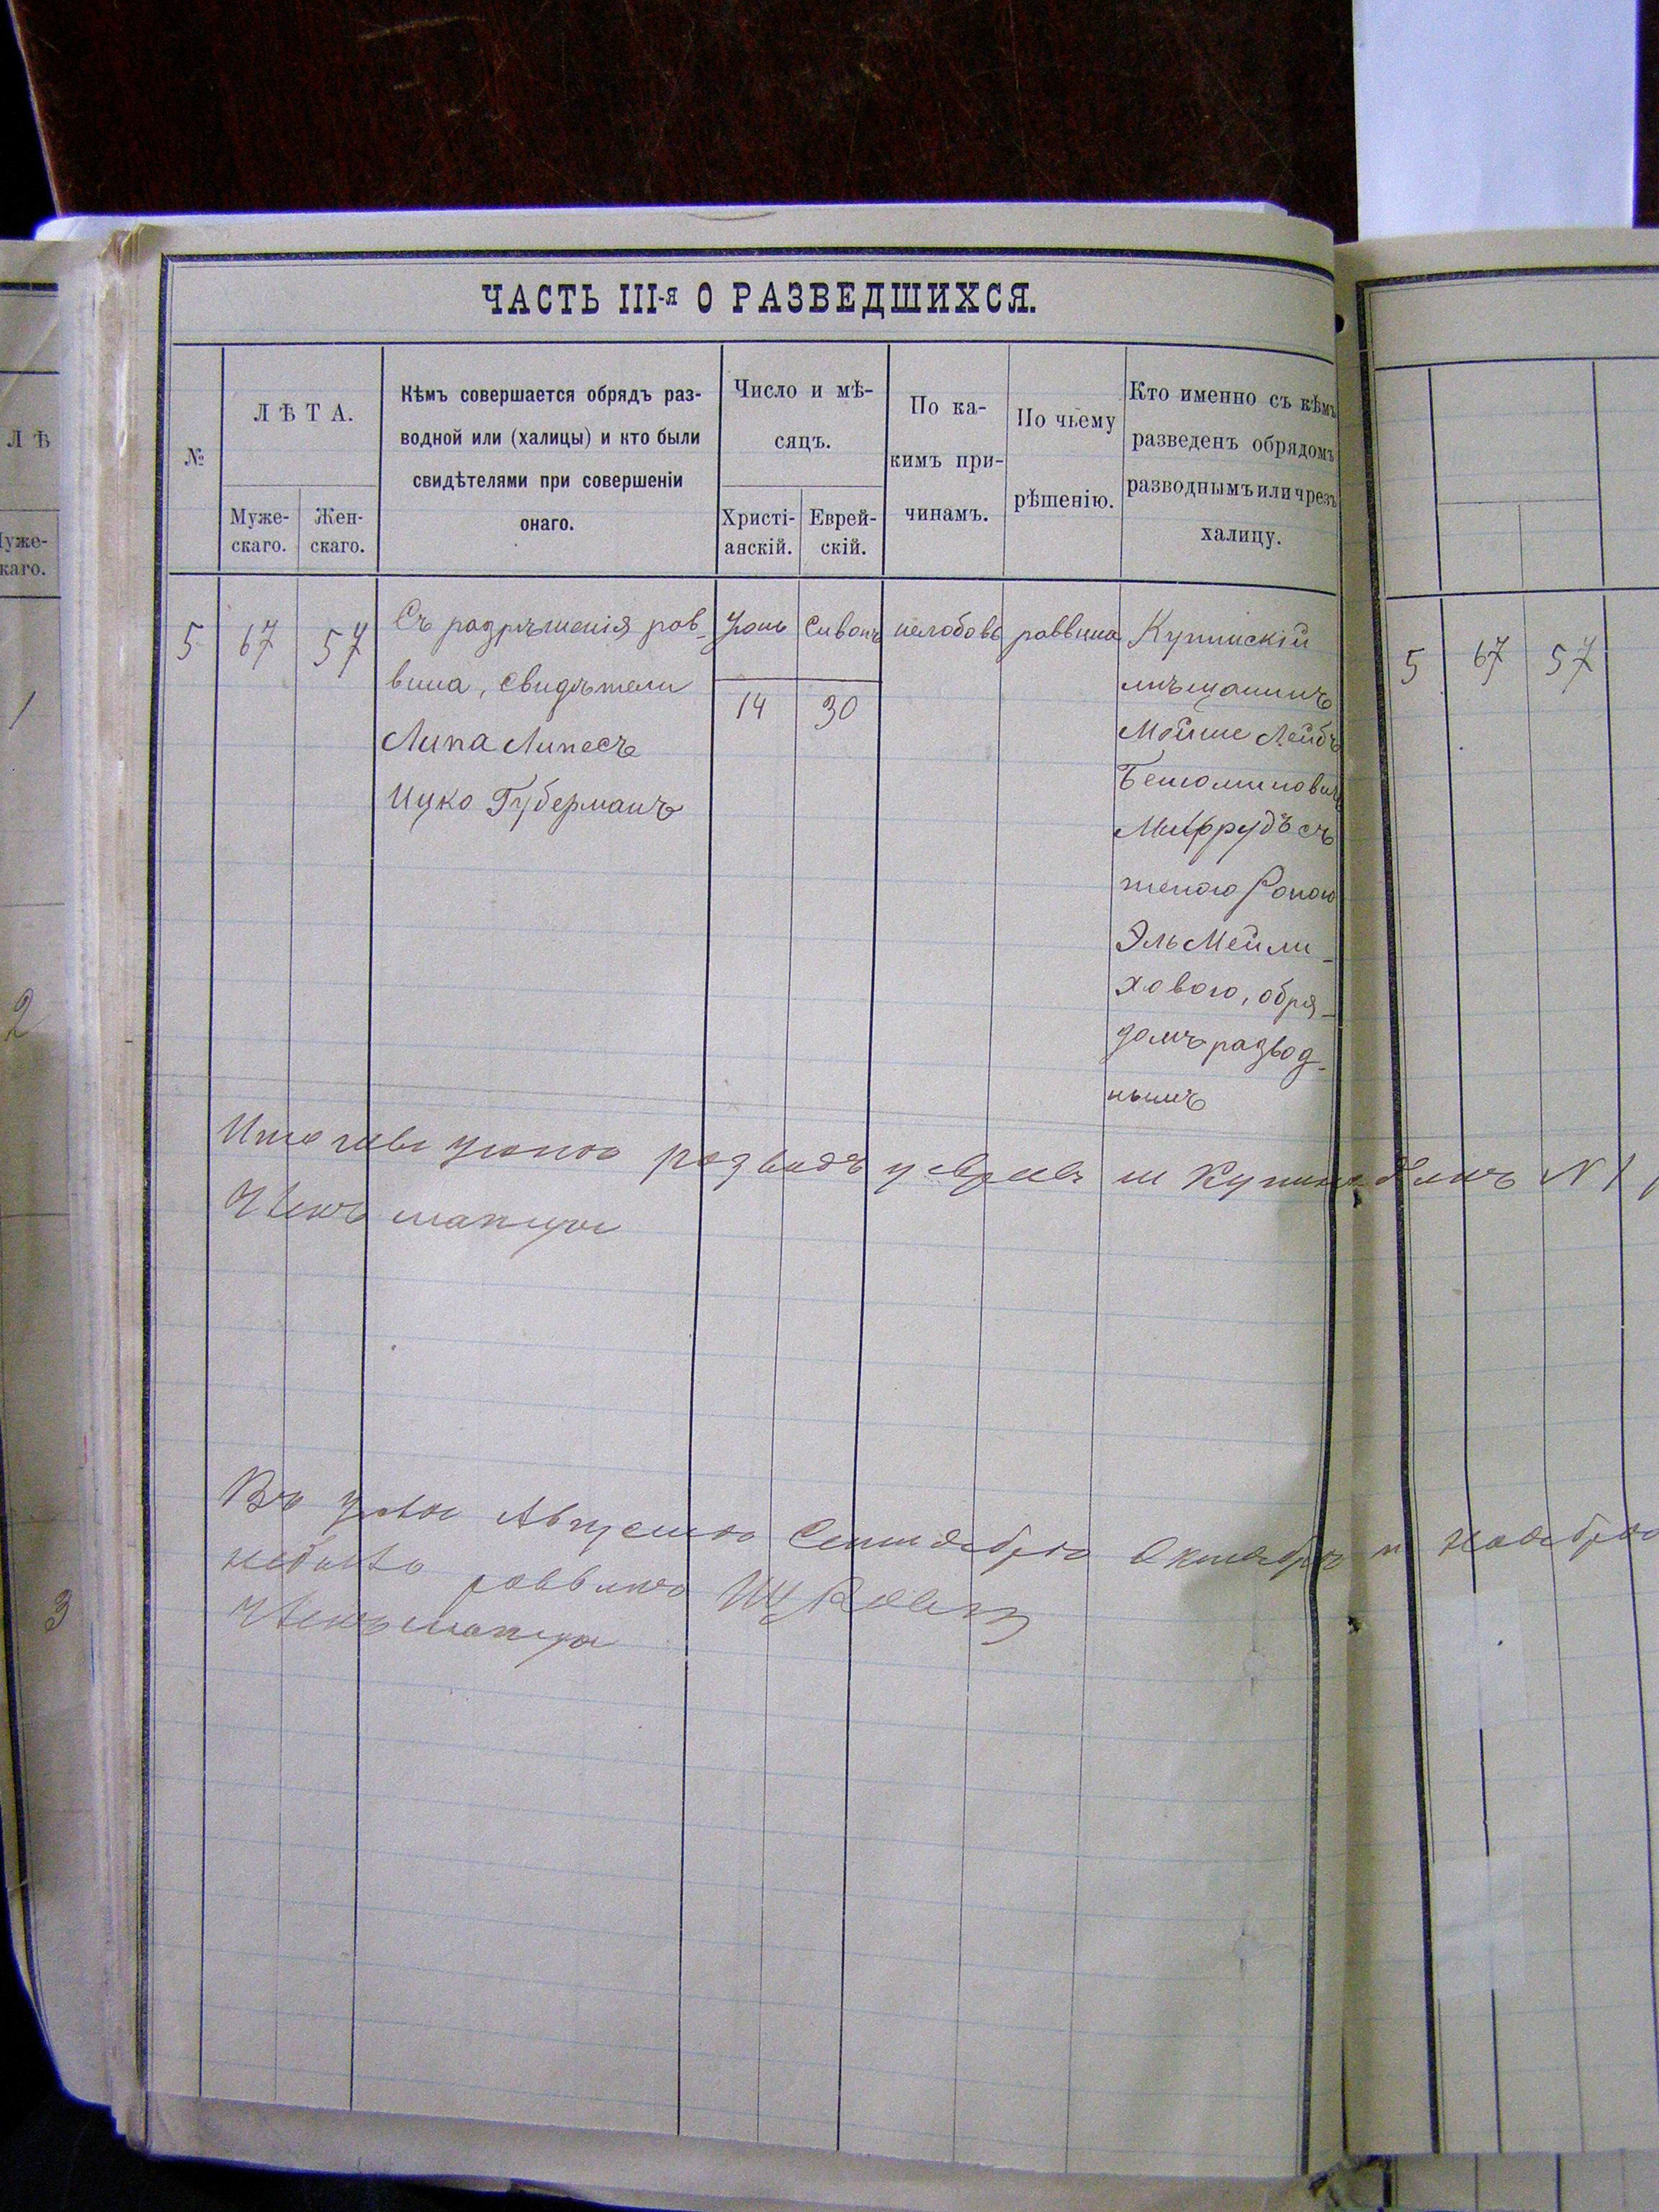 ЧАСТЬ III-я О РАЗВЕДШИХСЯ.
№
ЛѢТА.
Муже-
скаго.
Жен-
скаго.
Кѣмъ совершается обрядъ раз-
водной или (халицы) и кто были
свидѣтелями при совершеніи
онаго.
Число и мѣ-
сяцъ.
Христі-
анскій.
Еврей-
скій.
По ка-
кимъ при-
чинамъ.
По чьему
рѣшенію.
Кто именно съ кѣмъ
разведенъ обрядомъ
разводнымъ или чрезъ
халицу.
5
67
57
Съ разрѣшенія рав-
вина, свидѣтели
Липа Липесъ
Ицко Губерманъ
Іюнь
14
Сиванъ
30
нелюбовь
раввина
Купинскій
мѣщанинъ
Мойше Лейбъ
Беніоминовичъ
съ
женою
Эль Мейли-
ховою, обря-
домъ развод-
нымъ
разводъ
Августа Сентября Октября и Ноября
небыло раввинъ
ЛѢ
Муже-
скаго.
1
2
3
5
67
57